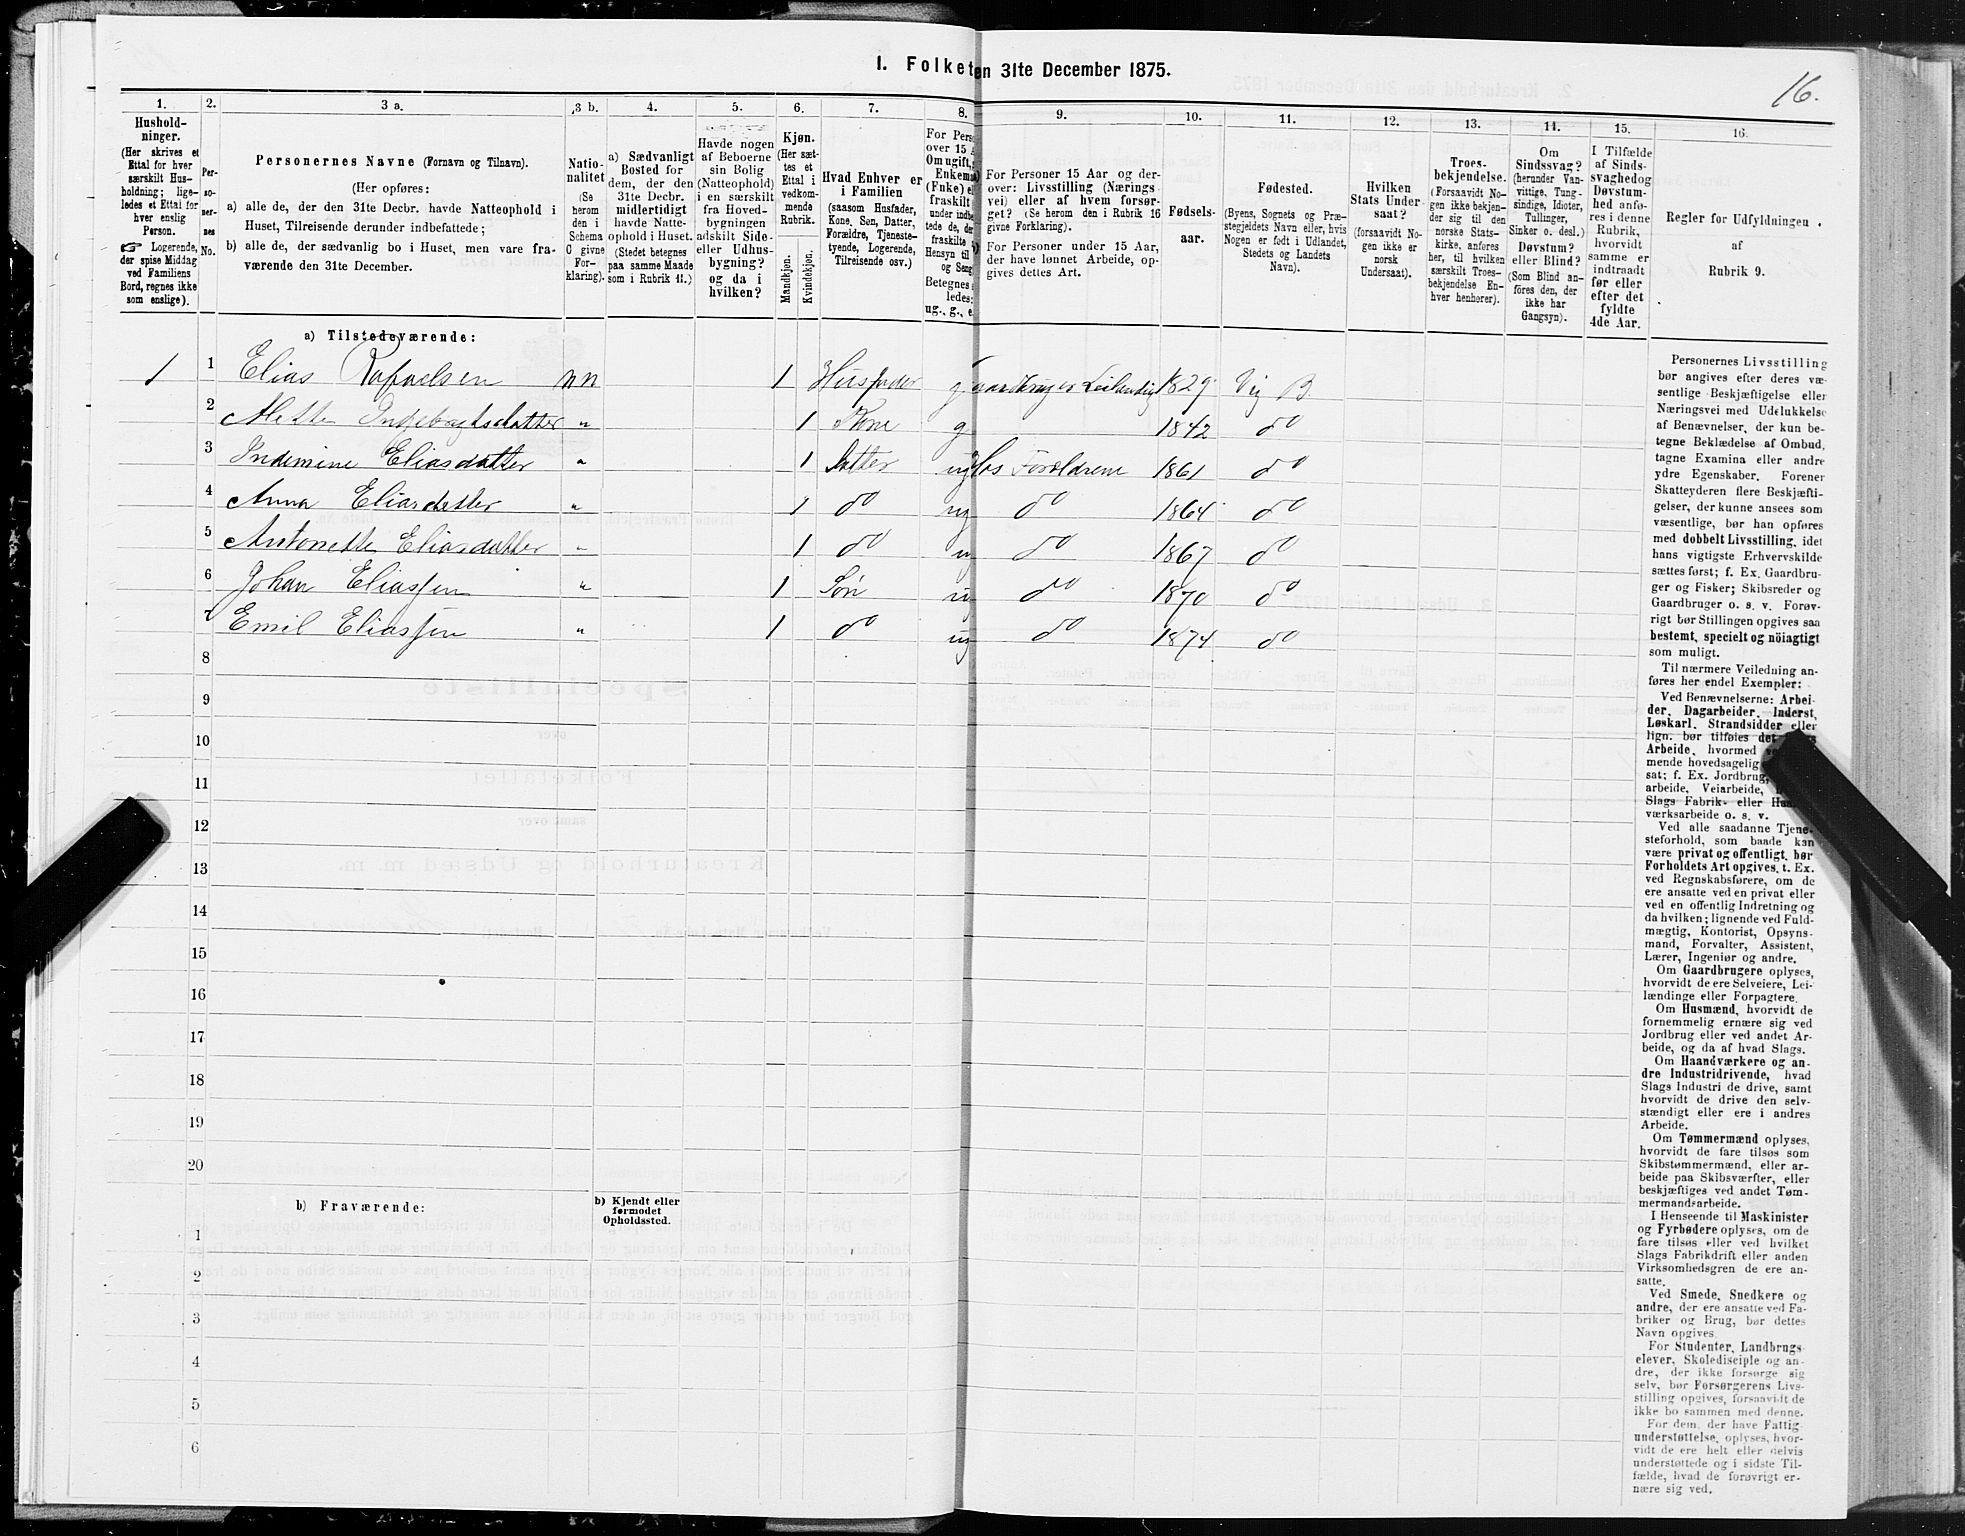 I. Folketen 31te December 1875.
16.
1.
2.
3 a.
3 b.
4.
5.
6.
7.
8.
9.
10.
11.
12.
13.
14.
15.
16.
Hushold-
ninger.
(Her skrives et
Ettal for hver
særskilt Hus-
holdning; lige-
ledes et Ettal for
hver enslig
Person.
☞ Logerende,
der spise Middag
ved Familiens
Bord, regnes ikke
som enslige).
Per-
so-
ner-
nes
No.
Personernes Navne (Fornavn og Tilnavn).
(Her opføres:
a) alle de, der den 31te Decbr. havde Natteophold i
Huset, Tilreisende derunder indbefattede;
b) alle de, der sædvanlig bo i Huset, men vare fra-
værende den 31te December.
Natio-
nalitet
(Se
herom
den i
Schema
O givne
For-
klaring).
a) Sædvanligt
Bosted for
dem, der den
31te Decbr.
midlertidigt
havde Natte-
ophold i Huset.
(Stedet betegnes
paa samme Maade
som i Rubrik 11.)
Havde nogen
af Beboerne
sin Bolig
(Natteophold)
i en særskilt
fra Hoved-
bygningen
adskilt Side-
eller Udhus-
bygning?
og da i
hvilken?
Kjøn.
(Her sæt-
tes et
Ettal i
vedkom-
mende
Rubrik.
Mandkjøn.
Kvindekjøn.
Hvad Enhver er
i Familien
(saasom Husfader,
Kone, Søn, Datter,
Forældre, Tjeneste-
tyende, Logerende,
Tilreisende osv.)
For Pers
over 15 A
Om ugift,
Enkema
(Fnke) e
fraskilt
under indbe
tede de, de
fraskilte
Hensyn til
og Seng
Betegnes
ledes:
ug., g., e.
For Personer 15 Aar og der-
over: Livsstilling (Nærings
vei) eller af hvem forsør-
get? (Se herom den i Rubrik 16
givne Forklaring).
For Personer under 15 Aar,
der have lønnet Arbeide, op-
gives dettes Art.
Fødsels-
aar.
Fødested.
(Byens, Sognets og Præ-
stegjeldets Navn eller, hvis
Nogen er født i Udlandet,
Stedets og Landets
Navn).
Hvilken
Stats Under
saat?
(forsaavidt No-
gen ikke er
norsk
Undersaat).
Troes-
bekjendelse.
(Forsaavidt No-
gen ikke bekjen-
der sig til den
norske Stats-
kirke, anføres
her, til hvilken
særskilt Troes-
bekjendelse En-
hver henhører).
Om
Sindssvag?
(herunder Van-
vittige, Tung-
sindige, Idioter,
Tullinger,
Sinker o. desl.)
Døvstum?
eller Blind?
(Som Blind an-
föres den, der
ikke har
Gangsyn).
I Tilfælde
af Sinds-
svaghedog
Døvstum-
hed anfø-
res i denne
Rubrik,
hvorvidt
samme er
indtraadt
før eller
efter det
fyldte
4de Aar.
Regler for Udfyldningen
af
Rubrik 9.
a) Tilstedeværende:
1 1 Elias Rafaelsen nn 1 Husfader g Gaardbruger Leilending 1829 Vig B.
2 Mette Ingebrigtsdatter " 1 Kone g 1842 do
3 Indemine Eliasdatter " 1 Datter ug hos Forældrene 1861 do
4 Anna Eliasdatter " 1 do ug do 1864 do
5 Antonette Eliasdatter " 1 do ug do 1867 do
6 Johan Eliassen " 1 Søn ug do 1870 do
7 Emil Eliassen " 1 do ug do 1874 do
8
9
10
11
12
13
14
15
16
17
18
19
20
b) Fraværende:
b) Kjendt eller
førmodet
Opholdssted.
1
2
3
4
5
6
Personernes Livsstilling
bør angives efter deres væ-
sentlige Beskjæftigelse eller
Næringsvei med Udelukkelse
af Benævnelser, der kun be-
tegne Beklædelse af Ombud,
tagne Examina eller andre
ydre Egenskaber. Forener
Skatteyderen flere Beskjæfti-
gelser, der kunne ansees som
væsentlige, bør han opføres
med dobbelt Livsstilling, idet
hans vigtigste Erhvervskilde
sættes først; f. Ex. Gaardbru-
ger og Fisker; Skibsreder og
Gaardbruger o. s. v. Forøv-
rigt bør Stillingen opgives saa
bestemt, specielt og nöiagtigt
som muligt.
Til nærmere Veiledning an-
føres her endel Exempler:
Ved Benævnelserne: Arbei-
der, Dagarbeider, Inderst,
Løskarl, Strandsidder eller
lign. bør tilføies det
Arbeide, hvormed
mende hovedsagelig
sat; f. Ex. Jordbrug,
arbeide, Veiarbeide,
Slags Fabrik- eller
værksarbeide o. s. v.
Ved alle saadanne Tjene-
steforhold, som baade kan
være privat og offentligt, bør
Forholdets Art opgives, t. Ex.
ved Regnskabsførere, om de
ere ansatte ved en privat eller
ved en offentlig Indretning og
da hvilken; lignende ved Fuld-
mægtig, Kontorist, Opsyns-
mand, Forvalter, Assistent,
Lærer, Ingeniør og andre.
Om Gaardbrugere oplyses,
hvorvidt de ere Selveiere, Lei-
lændinge eller Forpagtere.
Om Husmænd, hvorvidt de
fornemmelig ernære sig ved
Jordbrug eller ved andet Ar-
beide, og da af hvad Slags.
Om Haandværkere og an-
dre Industridrivende, hvad
Slags Industri de drive, samt
hvorvidt de drive den selv-
stændigt eller ere i andres
Arbeide.
Om Tømmermænd oplyses,
hvorvidt de fare tilsøs som
Skibstømmermænd, eller ar-
beide paa Skibsværfter, eller
beskjæftiges ved andet Tøm-
mermandsarbeide.
I Henseende til Maskinister
og Fyrbødere oplyses, om de
fare tilsøs eller ved hvilket
Slags Fabrikdrift eller anden
Virksomhedsgren de ere an-
satte.
Ved Smede, Snedkere og
andre, der ere ansatte ved Fa-
briker og Brug, bør dettes
Navn opgives.
For Studenter, Landbrugs-
elever, Skoledisciple og an-
dre, der ikke forsørge sig
selv, bør Forsørgerens Livs-
stilling opgives, forsaavidt de
ikke bo sammen med denne.
For dem, der have Fattig-
understøttelse, oplyses, hvor-
vidt de ere helt eller delvis
understøttede og i sidste Til-
fælde, hvad de forøvrigt er-
nære sig ved.